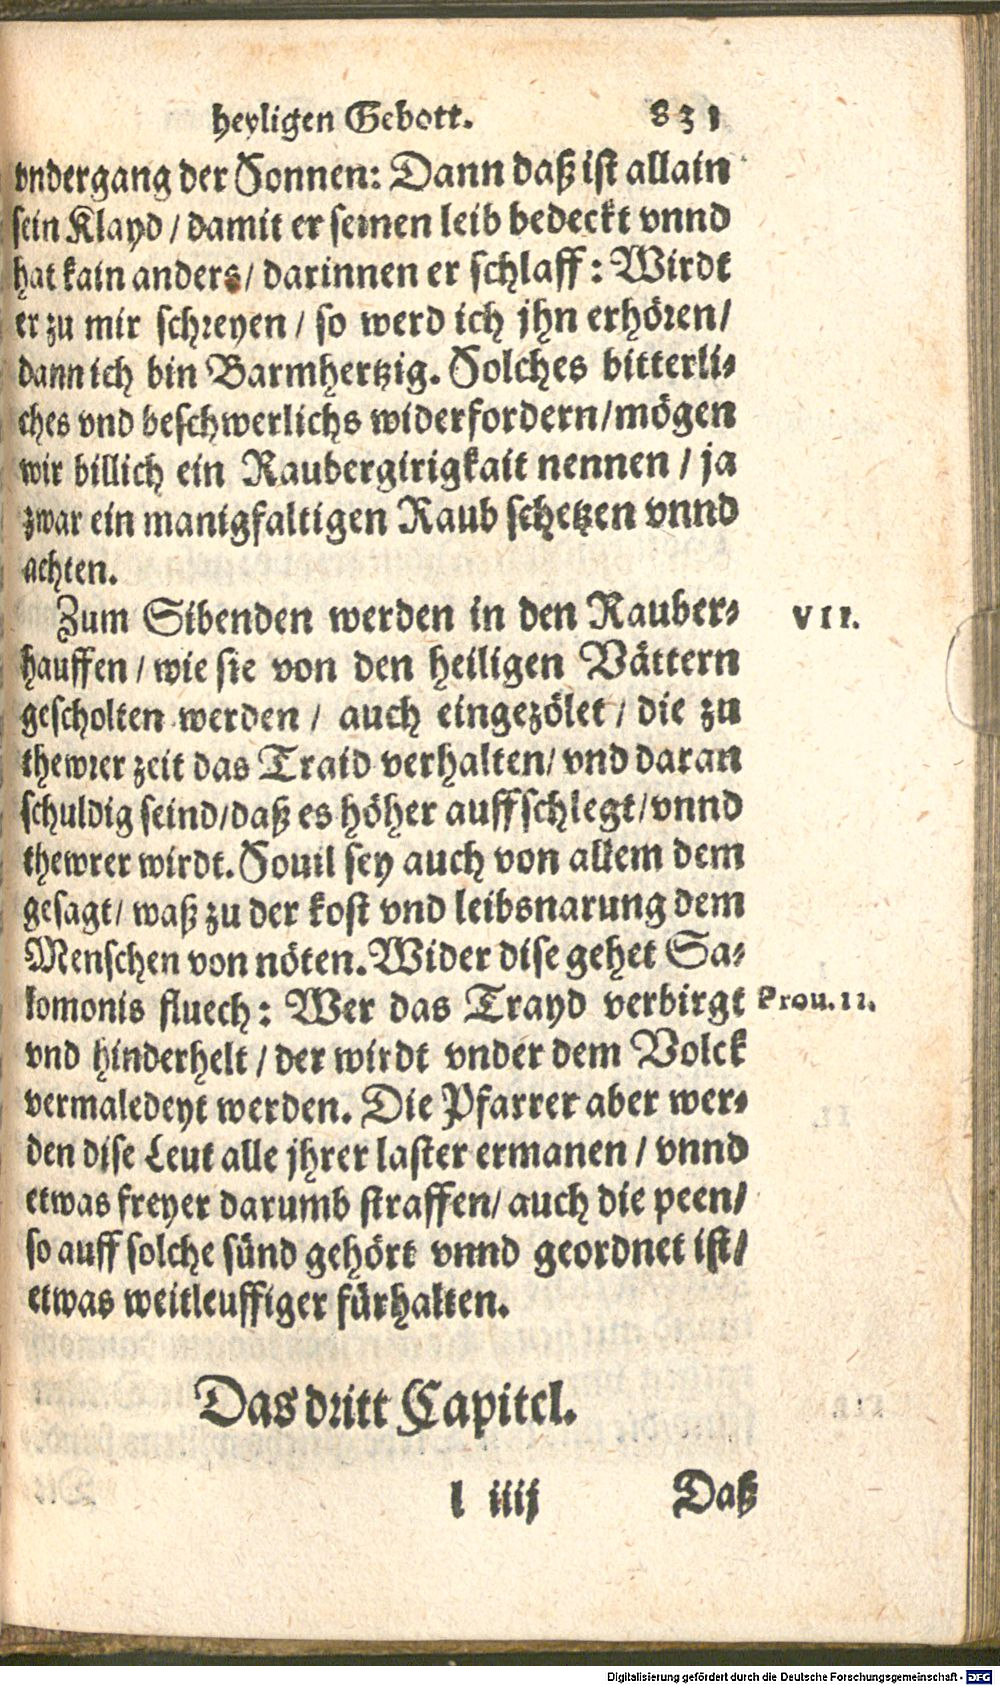 heyligen Gebott. 831
vndergang der Sonnen: Dann daß ist allain
sein Klayd / damit er seinen leib bedeckt vnnd
hat kain anders / darinnen er schlaff: Wirdt
er zu mir schreyen / so werd ich jhn erhören /
dann ich bin Barmhertzig. Solches bitterli-
ches vnd beschwerlichs widerfordern / mögen
wir billich ein Raubergirigkait nennen / ja
zwar ein manigfaltigen Raub schetzen vnnd
achten.
Zum Sibenden werden in den Rauber- VII.
hauffen / wie sie von den heiligen Vättern
gescholten werden / auch eingezölet / die zu
thewrer zeit das Traid verhalten / vnd daran
schuldig seind / daß es höher auffschlegt / vnnd
thewrer wirdt. Souil sey auch von allem dem
gesagt / waß zu der kost vnd leibsnarung dem
Menschen von nöten. Wider dise gehet Sa-
lomonis fluech: Wer das Trayd verbirgt Prou. 11.
vnd hinderhelt / der wirdt vnder dem Volck
vermaledeyt werden. Die Pfarrer aber wer-
den dise Leut alle jhrer laster ermanen / vnnd
etwas freyer darumb straffen / auch die peen /
so auff solche sünd gehört vnnd geordnet ist /
etwas weitleuffiger fürhalten.
Das dritt Capitel.
l iiij Daß
Digitalisierung gefördert durch die Deutsche Forschungsgemeinschaft - DFG